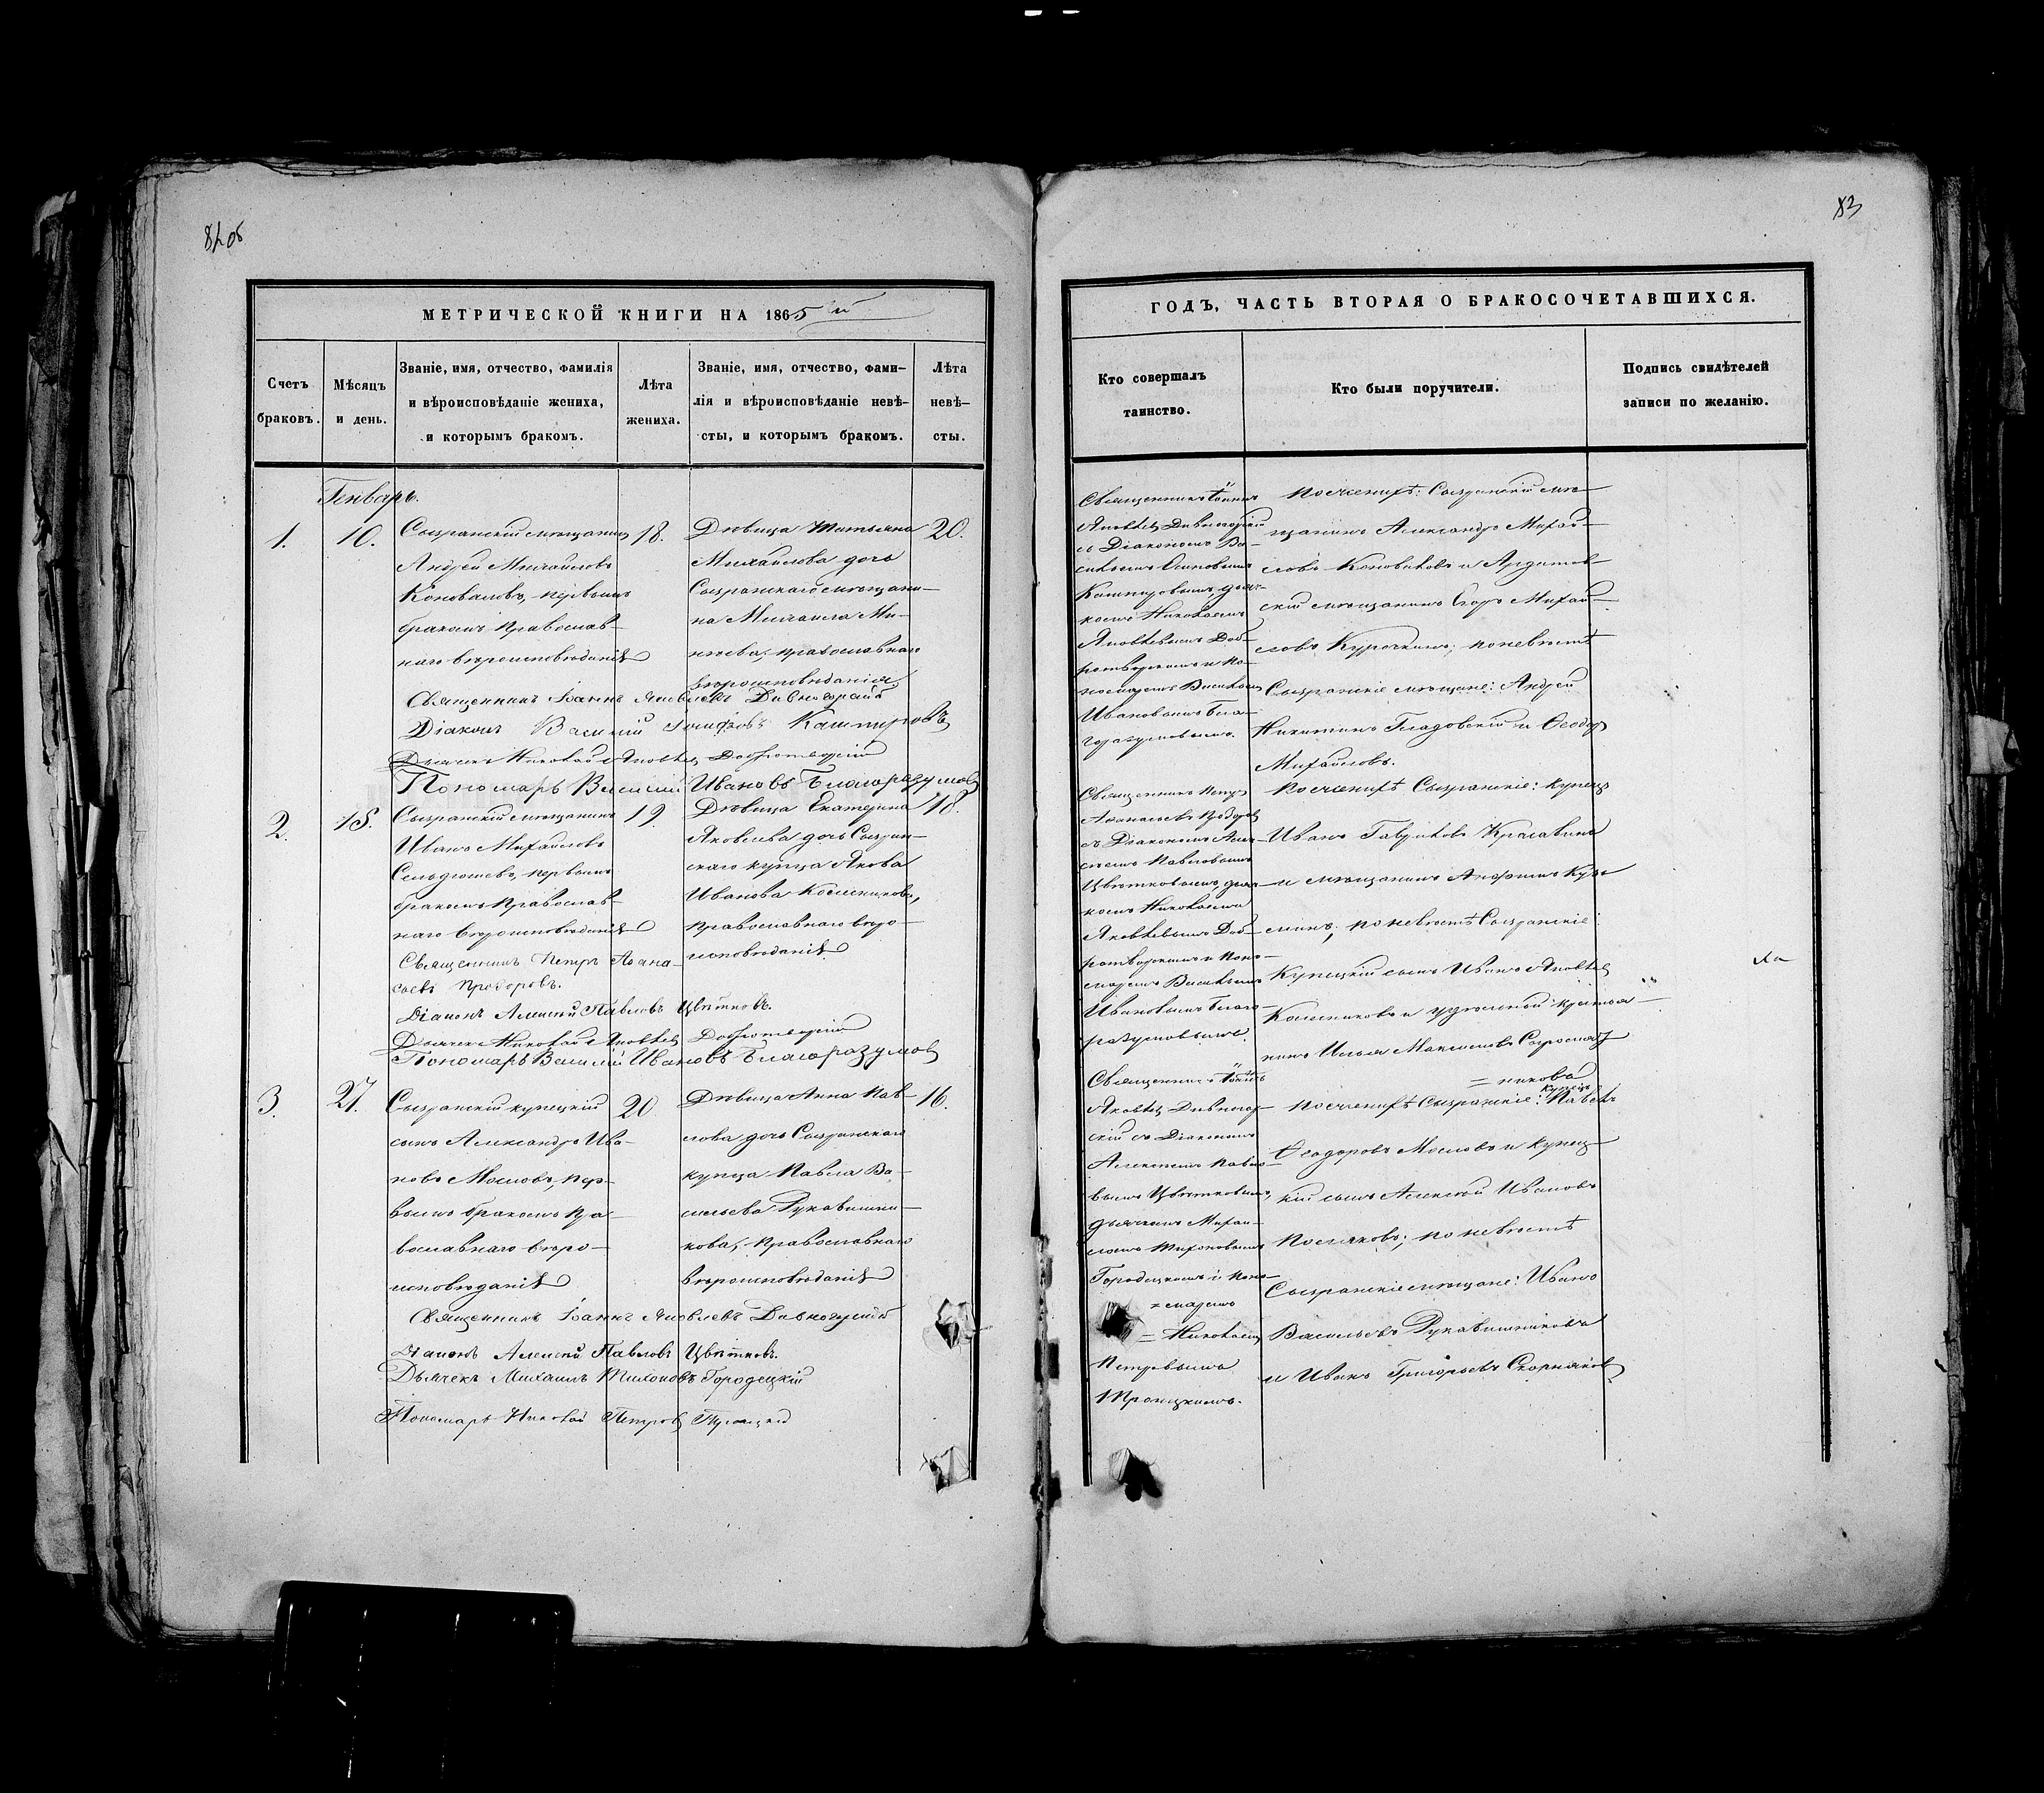 82об
МЕТРИЧЕСКОЙ КНИГИ НА 1865й
Счетъ браковъ.
Мѣсяцъ и день.
Званіе, имя, отчество, фамилія
и вѣроисповѣданіе жениха,
и которымъ бракомъ.
Лѣта
жениха.
Званіе, имя, отчество, фами–
лія и вѣроисповѣданіе невѣ–
сты, и которымъ бракомъ.
Лѣта
невѣ–
сты.
Генварь.
1.
10.
Сызранскій мѣщанинъ
Андрей Михайловъ
Коноваловъ, первымъ
бракомъ Православ–
наго вѣроисповѣданія
18.
Дѣвица Татьяна
Михайлова дочь
Сызранскаго мѣщани–
на Михаила Ми–
нѣева, православнаго
вѣроисповѣданія.
20.
Священникъ Іоаннъ Яковлевъ Дивногорскій
Діаконъ Василій Осиповъ Кашпировъ
Дьячекъ Николай Яковлев Добротворскій
Пономарь Василий Ивановъ Благоразумов
2.
15.
Сызранскій мѣщанинъ
Иванъ Михайловъ
Сельдюшевъ, первымъ
бракомъ Православ–
наго вѣроисповѣданія
19.
Дѣвица Екатерина
Яковлева дочь Сызран–
скаго купца Якова
Иванова Колесникова,
православнаго вѣро–
исповѣданія.
18.
Священникъ Петръ Аѳана–
сьевъ Прозоровъ.
Діаконъ Алексій Павловъ Цвѣтковъ.
Дьячек Николай Яковлев Добротворскій
Пономарь Василій Ивановъ Благоразумов
3.
27.
Сызранскій купеческій
сынъ Александръ Ива–
новъ Масловъ, пер–
вымъ бракомъ Пра–
вославнаго вѣро–
исповѣданія
20
Дѣвица Анна Пав–
лова дочь Сызранскаго
купца Павла Ва–
сильева Рукавишни–
кова, Православнаго
вѣроисповѣданія
16.
Священникъ Іоаннъ Яковлевъ Дивногорскій
Діаконъ Алексій Павловъ Цвѣтковъ.
Дьячекъ Михаилъ Тихоновъ Городецкій
Пономарь Николай Петров Троицкій
83
ГОДЪ, ЧАСТЬ ВТОРАЯ О БРАКОСОЧЕТАВШИХСЯ.
Кто совершалъ
таинство.
Кто были поручители.
Подпись свидѣтелей
записи по желанію.
Священникъ Іоаннъ
Яковлев Дивногорскій
съ Діакономъ Ва–
силіемъ Осиповымъ
Кашпировымъ, дьяч–
комъ Николаемъ
Яковлевымъ Доб–
ротворскимъ и по–
номаремъ Василіем
Ивановымъ Бла–
горазумовымъ.
По женихѣ: Сызранскій мѣ–
щанинъ Александръ Михай–
ловъ Коноваловъ и Ардатов–
скій мѣщанинъ Егоръ Михай–
ловъ Курочкинъ; по невѣстѣ
Сызранскіе мѣщане: Андрей
Никитинъ Гладовскій и Ѳеодор
Михайловъ.
Священникъ Петръ
Аѳанасьевъ Прозоров
съ Діакономъ Алек–
сѣемъ Павловымъ
Цвѣтковымъ, дьяч–
комъ Николаемъ
Яковлевымъ Доб–
ротворскимъ и поно–
маремъ Василіемъ
Ивановымъ Благо–
разумовымъ.
По женихѣ Сызранскіе: купецъ
Иванъ Гавриловъ Красавинъ
и мѣщанинъ Анѳимъ Кузь–
минъ; по невѣстѣ Сызранскіе:
Купеческій сынъ Иванъ Яковлев
Колесниковъ и удѣльный крестья–
нинъ Илья Максимовъ
=никова
Священникъ Іоаннъ
Яковлев Дивногор–
скій съ Діакономъ
Алексѣемъ Павло–
вымъ Цвѣтковымъ,
дьячкомъ Михаи–
ломъ Тихоновымъ
Городецкимъ и поно–
=маремъ
=Николаем
Петровымъ
Троицкимъ.
По женихѣ Сызранскіе: купецъ Павелъ
Ѳеодоровъ Масловъ и купечес–
кій сынъ Алексѣй Ивановъ
Пастяковъ; по невѣстѣ
Сызранскіе мѣщане: Иванъ
Васильевъ Рукавишниковъ
и Иванъ Григорьевъ Скорняков